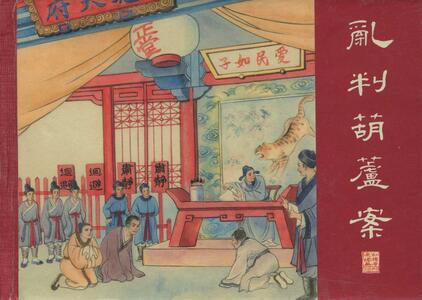 亂判葫蘆案
愛民如子
正堂
天府
迴避
迴避
肅靜
肅靜